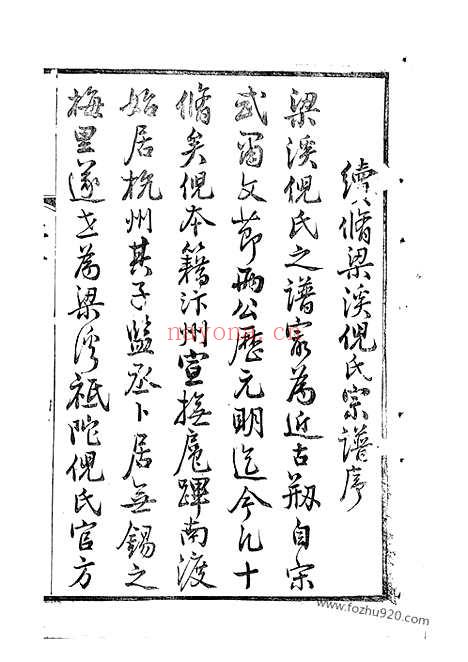 續脩梁溪倪氏宗譜序
梁溪倪氏之譜最為近古剏自宋
武寧文節兩公歷元明迄今凡十
脩矣倪本籍汴州宣撫扈蹕南渡
始居杭州其子監丞卜居無錫之
梅里遂世為梁溪祗陀倪氏官方
nayona.cn
www.fozhu920.com